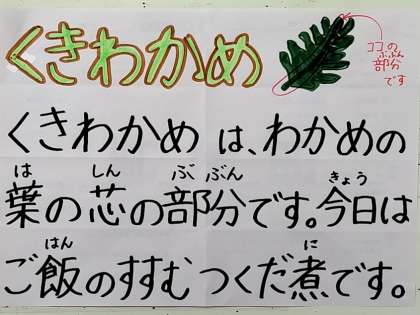 くきわかめ
ココの
ぶぶん
部分
です
くきわかめは、わかめの
は しん ぶぶん きょう
葉の芯の部分です。今日は
はん に
ご飯のすすむつくだ煮です。